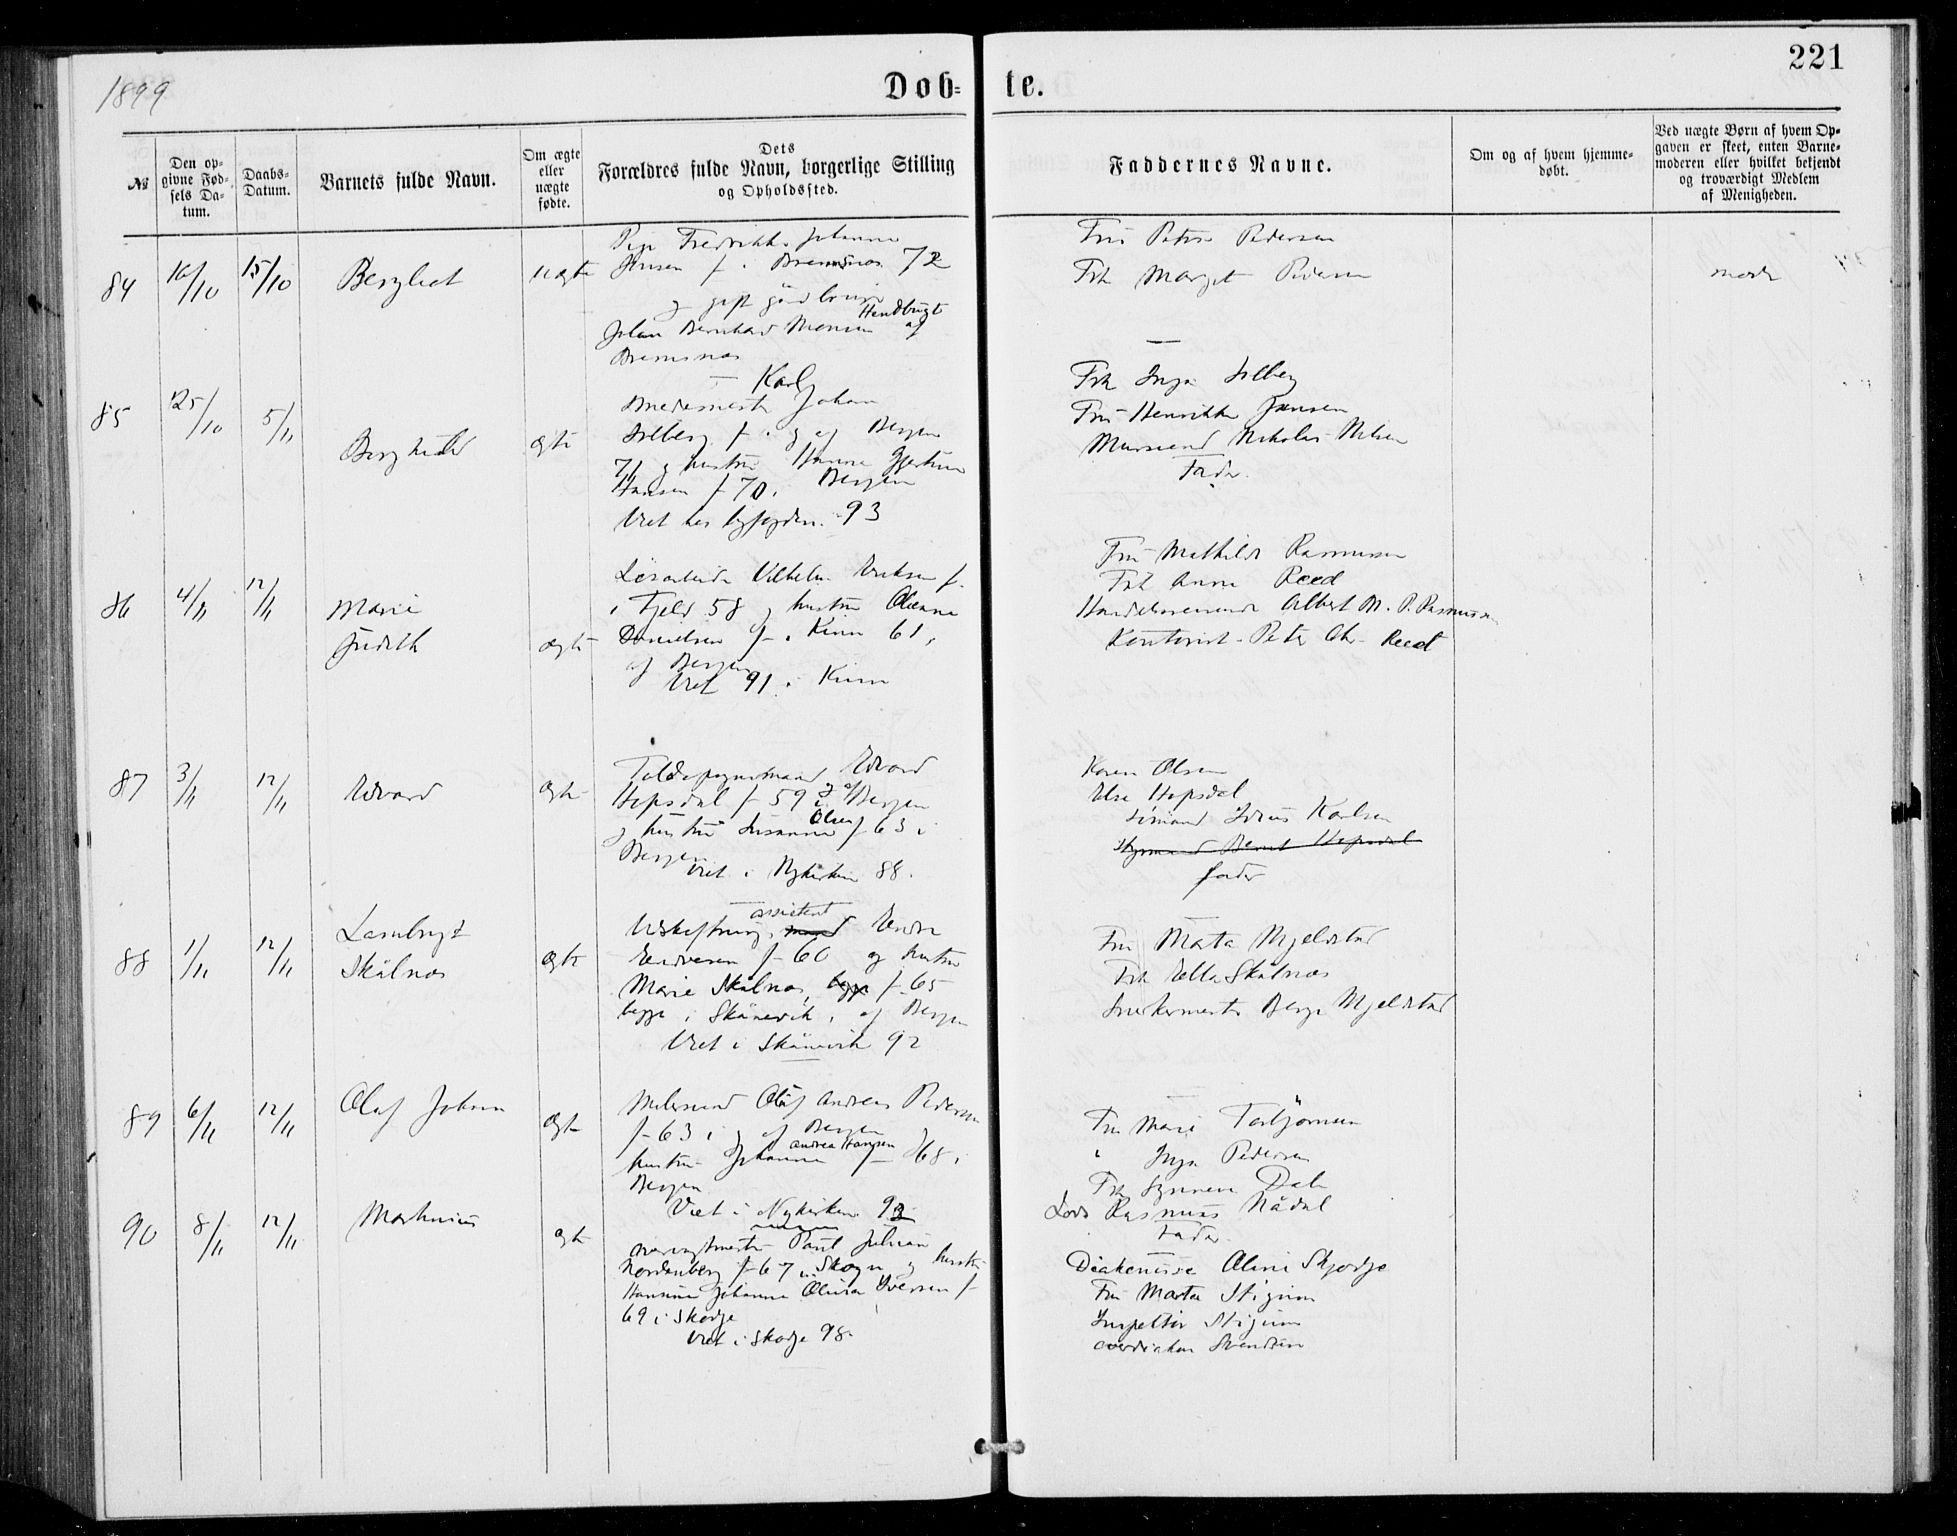 221
1899
Døb= te.
№
Den op=
givne Fød=
sels Da=
tum.
Daabs=
Datum.
Barnets fulde Navn.
Om ægte
eller
uægte
fødte.
Dets
Forældres fulde Navn, borgerlige Stilling
og Opholdssted.
Faddernes Navne.
Om og af hvem hjemme=
døbt.
Ved uægte Børn af hvem Op=
gaven er skeet, enten Barne=
moderen eller hvilket bekjendt
og troværdigt Medlem
af Menigheden.
84
10/10
15/10
Bergliot
uægte
Pige Fredrikke Johanna
Jensen f. i Bremsnes 72
og gift
Johan Bernhard Monsen af
Bremsnes
Fru Petra Pedersen
Frk Margit Pedersen
moder
85
25/10
5/11
Borghild
ægte
Karl
Smedemester Johan
Solberg f. i og af Bergen
71 og hustru Hanna Gjertine
Hansen f 70 i Bergen
Viet hos byfogden 93
Frk Inga Solberg
Fru Henrikke Jansen
Murersvend Nikolai Nilsen
Fader.
86
4/11
12/11
Marie
Judith
ægte
Løsarbeider Vilhelm Eriksen f.
i Fjeld 58 og hustru Oleanna
Danielsen f. i Kinn 61,
af Bergen
Viet 91 i Kinn
Fru Mathilde Rasmussen
Frk Anna Reed
Handelsreisende Albert M. P. Rasmussen
Kontorist Peter Chr. Reed
87
3/11
12/11
Edvard
ægte
Toldopsynsmand Edvard
Hopsdal f 59 i og af Bergen
og hustru Susanna Olsen f 63 i
Bergen
Viet i Nykirken 88.
Karen Olsen
Elsa Hopsdal
Sømand Idrius Karlsen
Styrmand Bernt Hopsdal
fader
88
1/11
12/11
Lambrigt
Skålnes
ægte
Udskiftnings assistent Endre
Endresen f 60 og hustru
Marie Skålnes, begge f 65
begge i Skånevik, af Bergen
Viet i Skånevik 92
Fru Marta Mjeldstad
Frk Ella Skålnes
Snekkermester Berge Mjeldstad
89
6/11
12/11
Olaf Johan
ægte
Malersvend Olaf Andreas Pedersen
f 63 i og af Bergen og
hustru Johanna Andrea Hansen f 68 i
Bergen
Viet i Nykirken 93
Fru Marie Torbjørnsen
" Inga Pedersen
Frk Synneve Dale
Lods Rasmus Nådal
Fader.
90
8/11
12/11
Martinius
ægte
Paul Julian
Nordenberg f 67 i Skogn og hustru
Hansine Johanne Olivia Iversen f
69 i Skodje
Viet i Skodje 98
Diakonisse Oline Skjodje
Fru Marta Stigum
Inspektør Stigum
overdiakon Svendsen